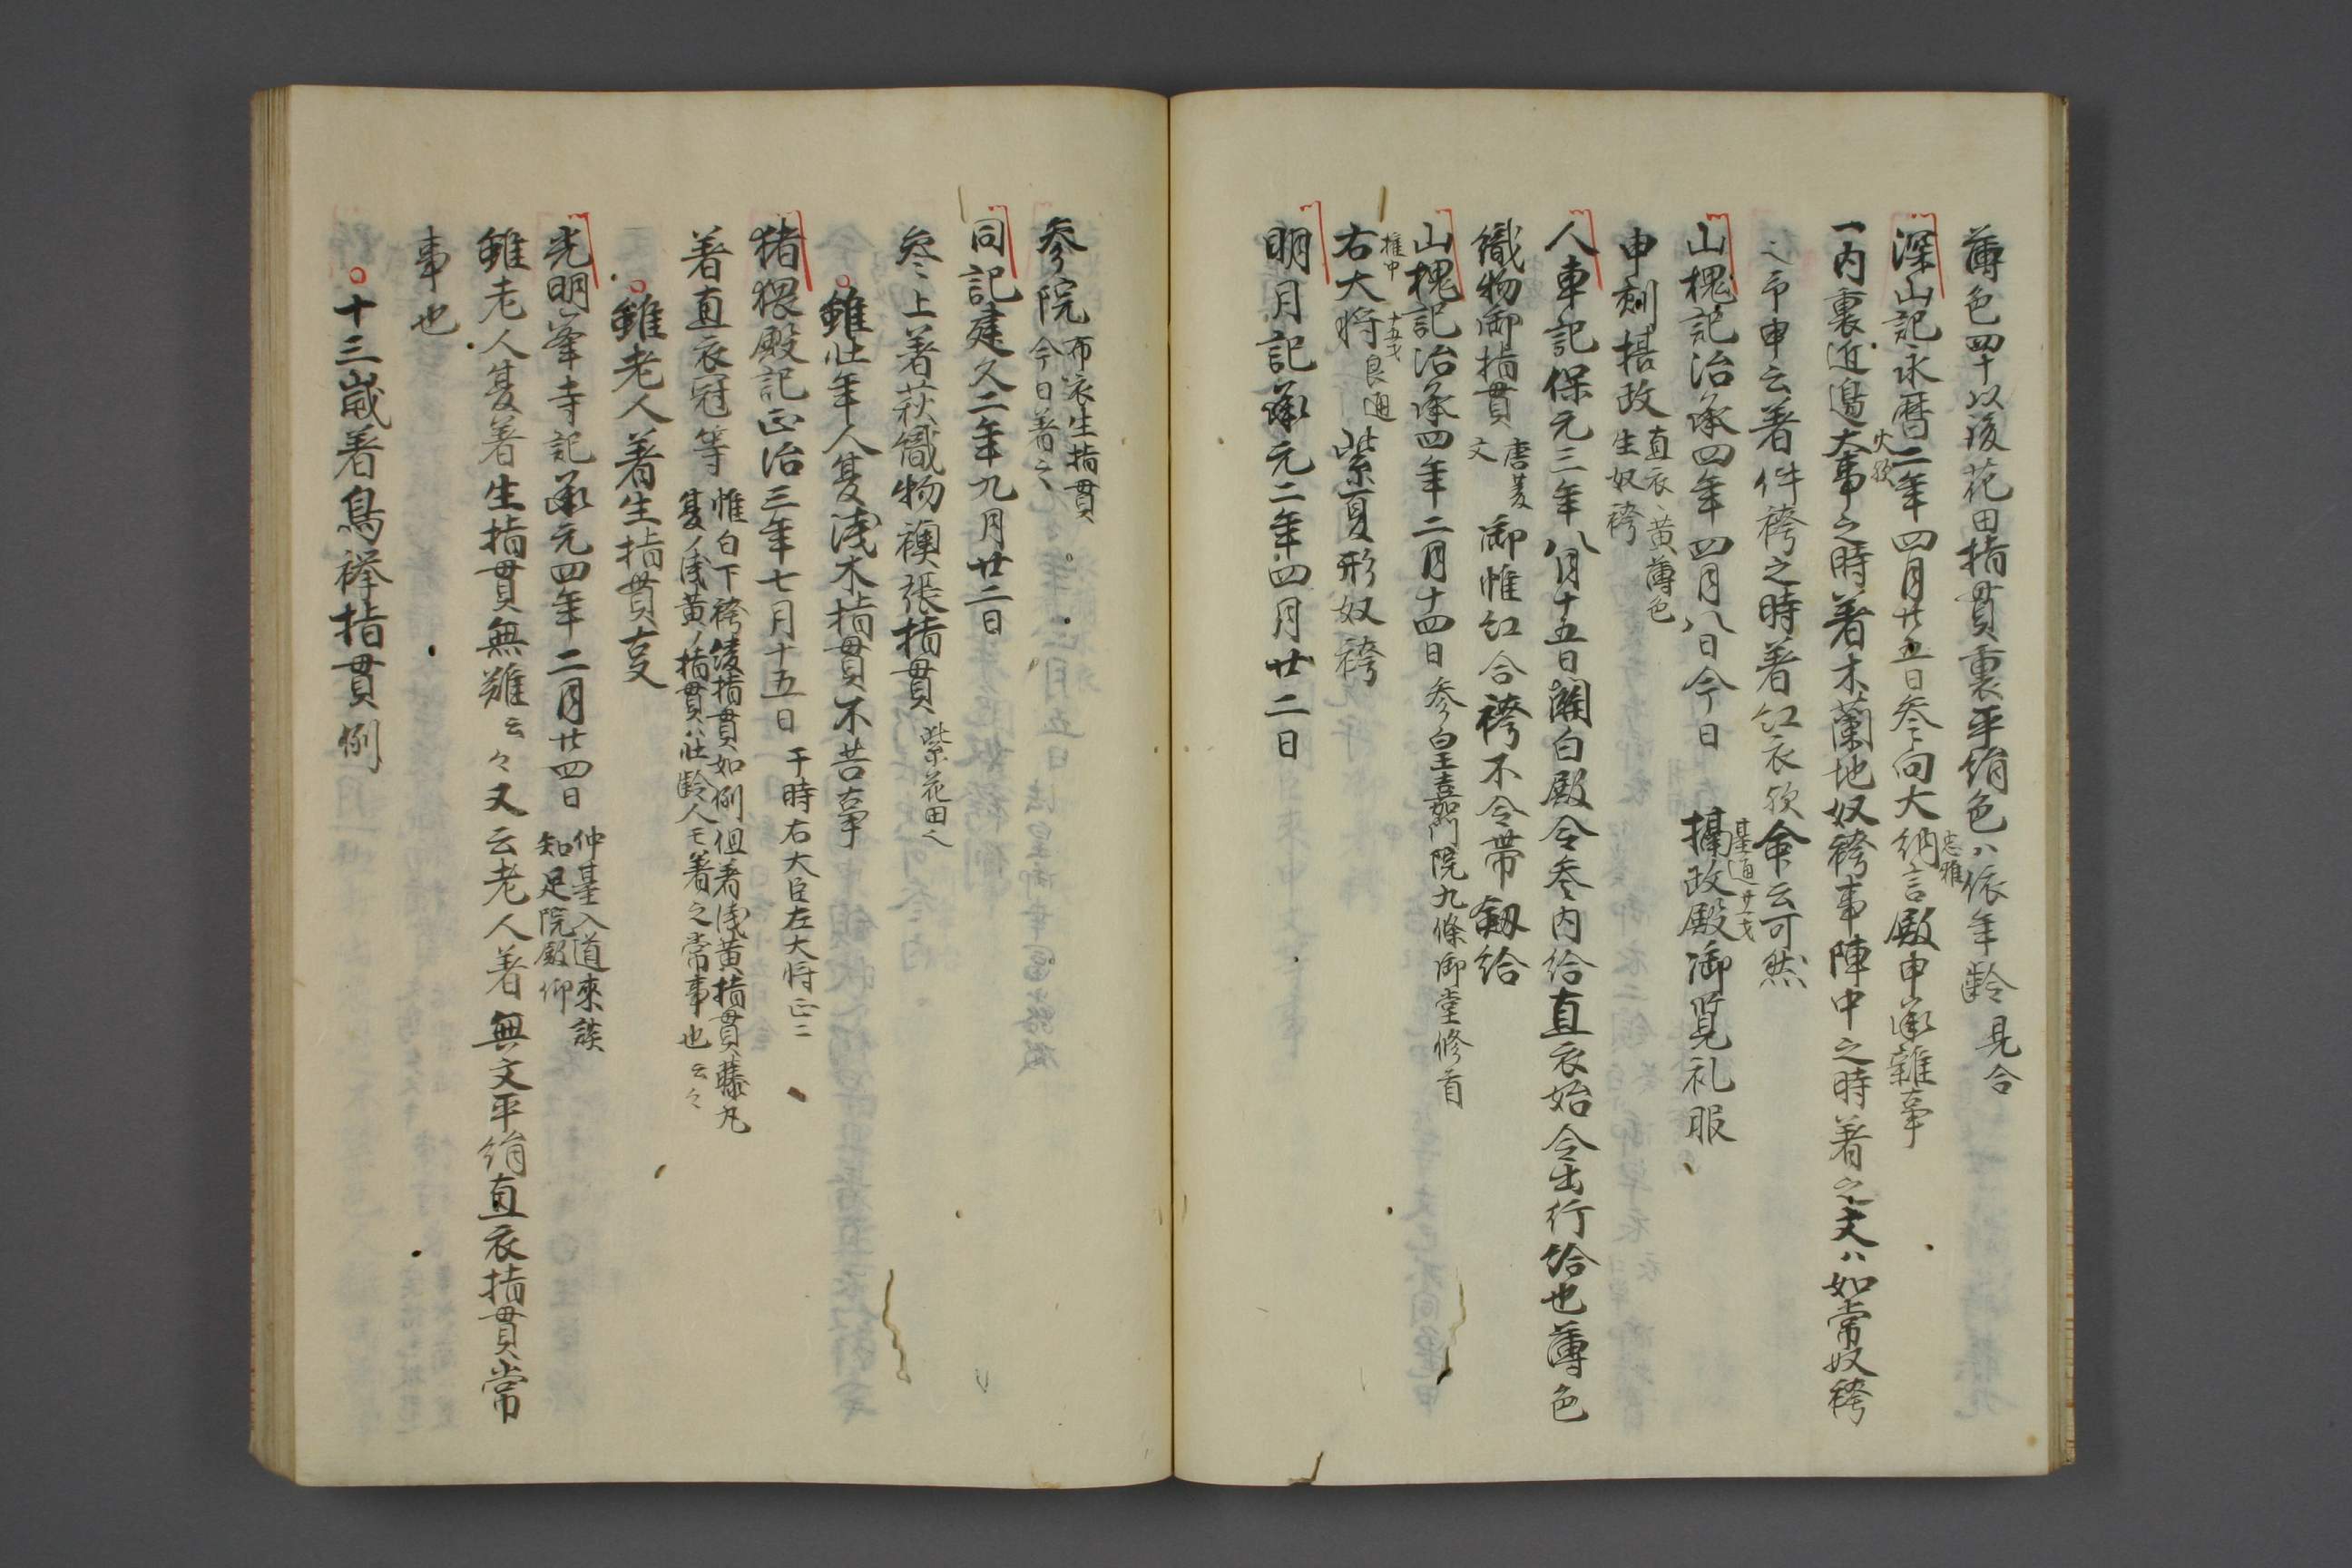 薄色四十以後花田指貫裏平絹色ハ依年齢見合
深山記永暦二年四月廿五日参向大納言殿申承雑事
忠雅
一内裏近邊大事之時着木蘭地奴袴事陣中之時着之文ハ如常奴袴
火欤
之申云着件袴之時着紅衣欤命云可然
山槐記治承四年四月八日今日 摂政殿御覧礼服
基通廿一才
申刻摂政 直衣、黄薄色
生奴袴
人車記保元三年八月十五日關白殿令参内給直衣始令出行給也薄色
織物御指貫 唐菱
文 御帷紅合袴不令帯劔給
山槐記治承四年二月十四日 参皇嘉門院九條御堂修首
右大将 良通 紫夏形奴袴
権中
十五才
明月記承元二年四月廿二日
参院 布衣生指貫
今日着之
同記建久二年九月廿二日
参上着萩織物襖張指貫 紫花田之
雖壮年人夏浅木指貫不苦事
猪猥殿記正治三年七月十五日 于時右大臣左大将正二
着直衣冠等 帷白下袴綾指貫如例但着浅黄指貫藤丸
夏ノ浅黄ノ指貫ハ壮齢人モ着之常事也云々
雖老人着生指貫事
光明峯寺記承元四年二月廿四日 仲基入道來談
知足院殿仰
雖老人夏着生指貫無難云々又云老人着無文平絹直衣指貫常
事也
十三歳着鳥襷指貫例